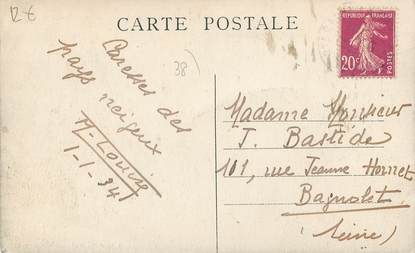 12€
CARTE POSTALE
RÉPUBLIQUE FRANÇAISE
20c
POSTES
38)
Caresses des
pays neigeux
M-Louise
1-1-34
Madame Monsieur
J. Bastide
101, rue Jeanne Hornet
Bagnolet
(Seine)